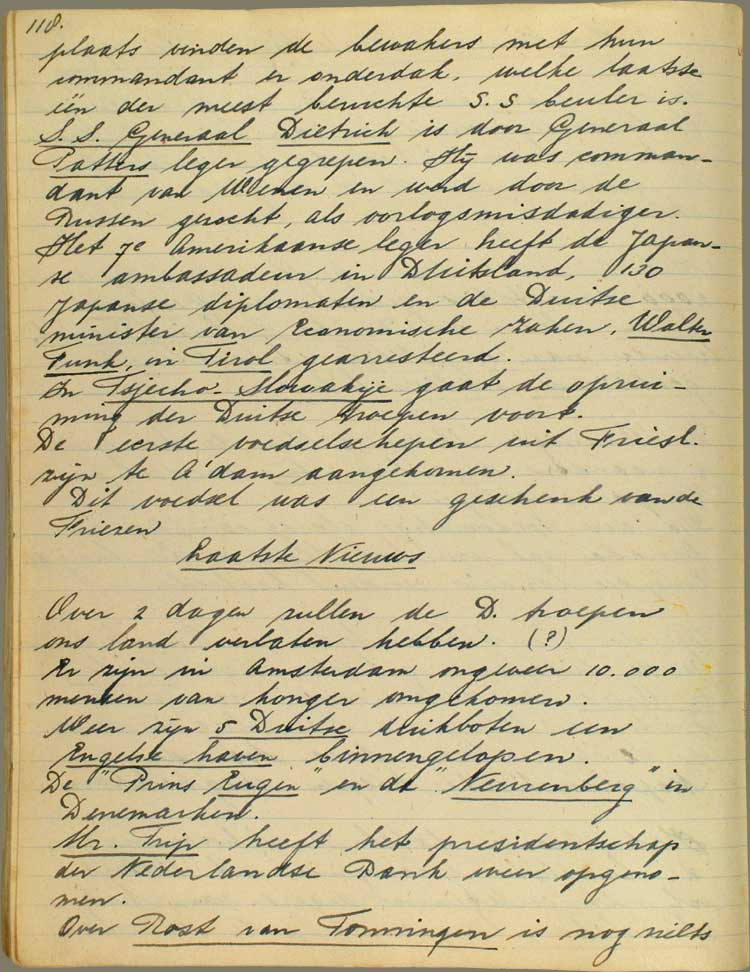 118.
plaats vinden de bewakers met hun
commandant er onderdak, welke laatste
één der meest beruchte S.S beulen is.
S.S. Generaal Dietrich is door Generaal
Pattons leger gegrepen. Hij was comman-
dant van Wenen en werd door de
Russen gezocht, als oorlogsmisdadiger.
Het 7e Amerikaanse leger heeft de Japan-
se ambassadeur in Duitsland, 130
Japanse diplomaten en de Duitse
minister van Economische zaken, Walter
Funk, in Tirol gearresteerd.
In Tsjecho-Slowakije gaat de oprui-
ming der Duitse troepen voort.
De eerste voedselschepen uit Friesl.
zijn te A'dam aangekomen.
Dit voedsel was een geschenk van de
Friezen
Laatste Nieuws
Over 2 dagen zullen de D. troepen
ons land verlaten hebben. (?)
Er zijn in Amsterdam ongeveer 10.000
mensen van honger omgekomen.
Weer zijn 5 Duitse duikboten een
Engelse haven binnengelopen.
De "Prins Eugen" en de "Neurenberg" in
Denemarken.
Mr. Trip heeft het presidentschap
der Nederlandse Bank weer opgeno-
men.
Over Rost van Tonningen is nog niets